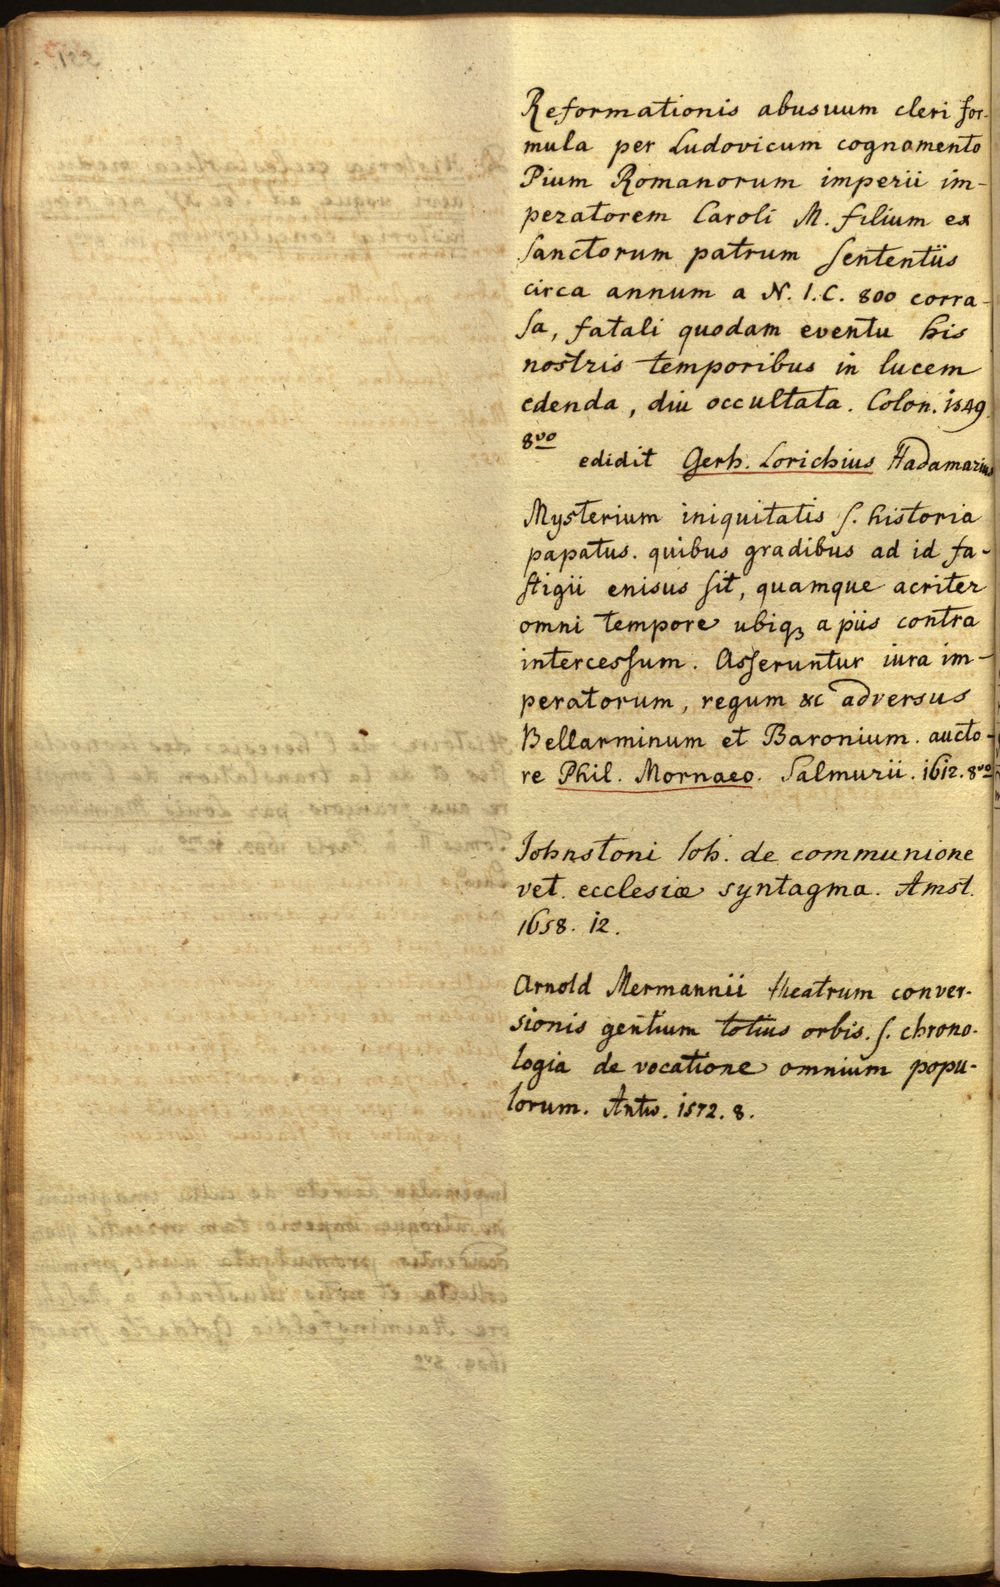 Reformationis abusuum cleri for-
mula per Ludovicum cognomento
Pium Romanorum imperii im-
peratorem Caroli M. filium ex
Sanctorum patrum Sententiis
circa annum a N. I. C. 800 corra-
sa, fatali quodam eventu his
nostris temporibus in lucem
edenda, diu occultata. Colon. 1549
8vo
edidit Gerh. Lorichius Hadamarius
Mysterium iniquitatis s. historia
papatus. quibus gradibus ad id fa-
stigii enisus sit, quamque acriter
omni tempore ubiq; a piis contra
intercessum. Asseruntur iura im-
peratorum, regum &c adversus
Bellarminum et Baronium. aucto-
re Phil. Mornaeo. Salmurii. 1612. 8vo
Johnstoni Joh. de communione
vet. ecclesiæ syntagma. Amst.
1658. 12.
Arnold Mermannii theatrum conver-
sionis gentium totius orbis. s. chrono-
logia de vocatione omnium popu-
lorum. Antw. 1572. 8.